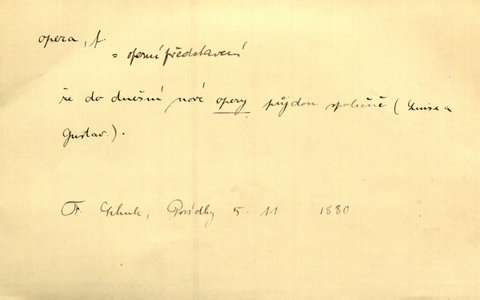 opera, f.
= operní představení
že do dnešní nové opery půjdou společně (Luisa a
Gustav).
Fr. Schulz, Povídky 5. 11 1880